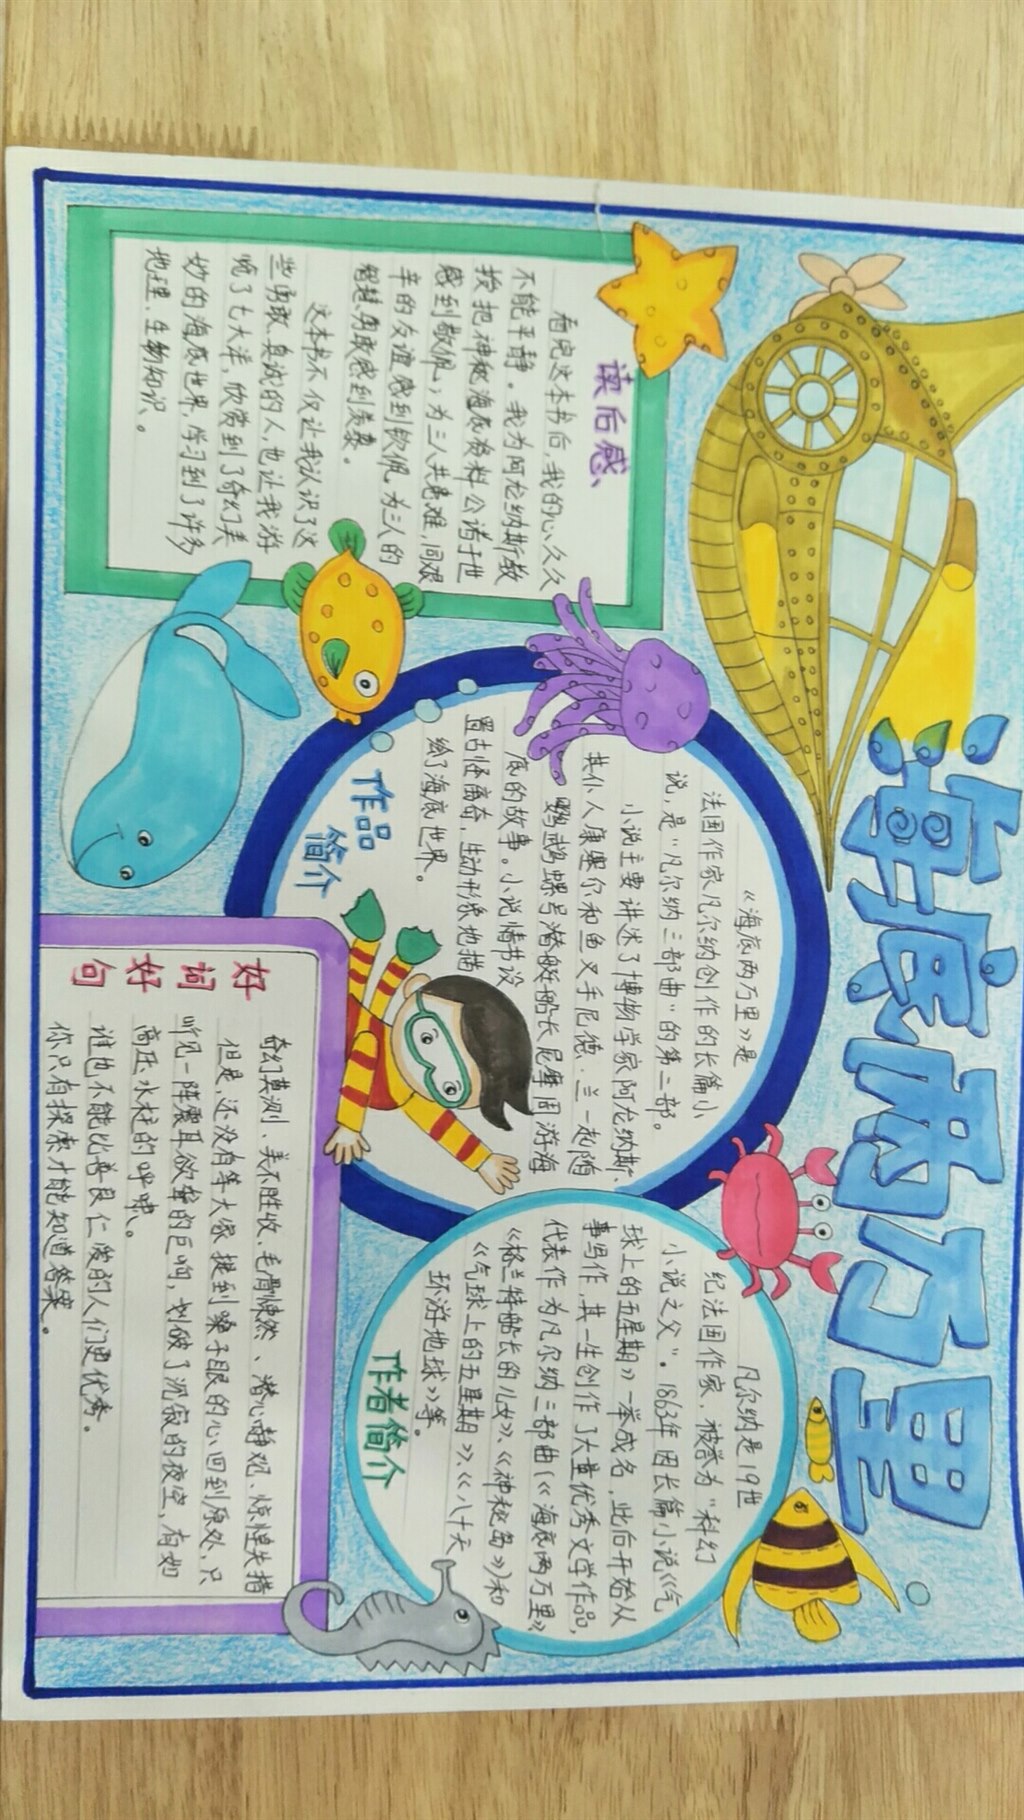 海底两万里
读后感
看完这本书后,我的心久久
不能平静。我为阿龙纳斯教
授把神秘海底资料公诸于世
感到敬佩;为三人共患难,同艰
辛的友谊感到钦佩,为三人的
智慧,勇敢感到羡慕。
这本书不仅让我认识了这
些勇敢、真诚的人,也让我游
览了七大洋,欣赏到了奇幻美
妙的海底世界,学习到了许多
地理、生物知识。
作品
简介
《海底两万里》是
法国作家凡尔纳创作的长篇小
说,是“凡尔纳三部曲”的第二部。
小说主要讲述了博物学家阿龙纳斯、
其仆人康塞尔和鱼叉手尼德·兰一起随
鹦鹉螺号潜艇船长尼摩周游海
底的故事。小说情节设
置古怪离奇,生动形象地描
绘了海底世界。
凡尔纳是19世
纪法国作家,被誉为“科幻
小说之父”。1863年因长篇小说《气
球上的五星期》一举成名,此后开始从
事写作,其一生创作了大量优秀文学作品,
代表作为凡尔纳三部曲(《海底两万里》
《格兰特船长的儿女》、《神秘岛》)和
《气球上的五星期》、《八十天
环游地球》等。
作者简介
好词好句
奇幻莫测、美不胜收、毛骨悚然、潜心静观、惊惶失措
但是,还没有等大家提到嗓子眼的心回到原处,只
听见一阵震耳欲聋的巨响,划破了沉寂的夜空,有如
高压水柱的呼啸。
谁也不能比善良仁爱的人们更优秀。
你只有探索才能知道答案。